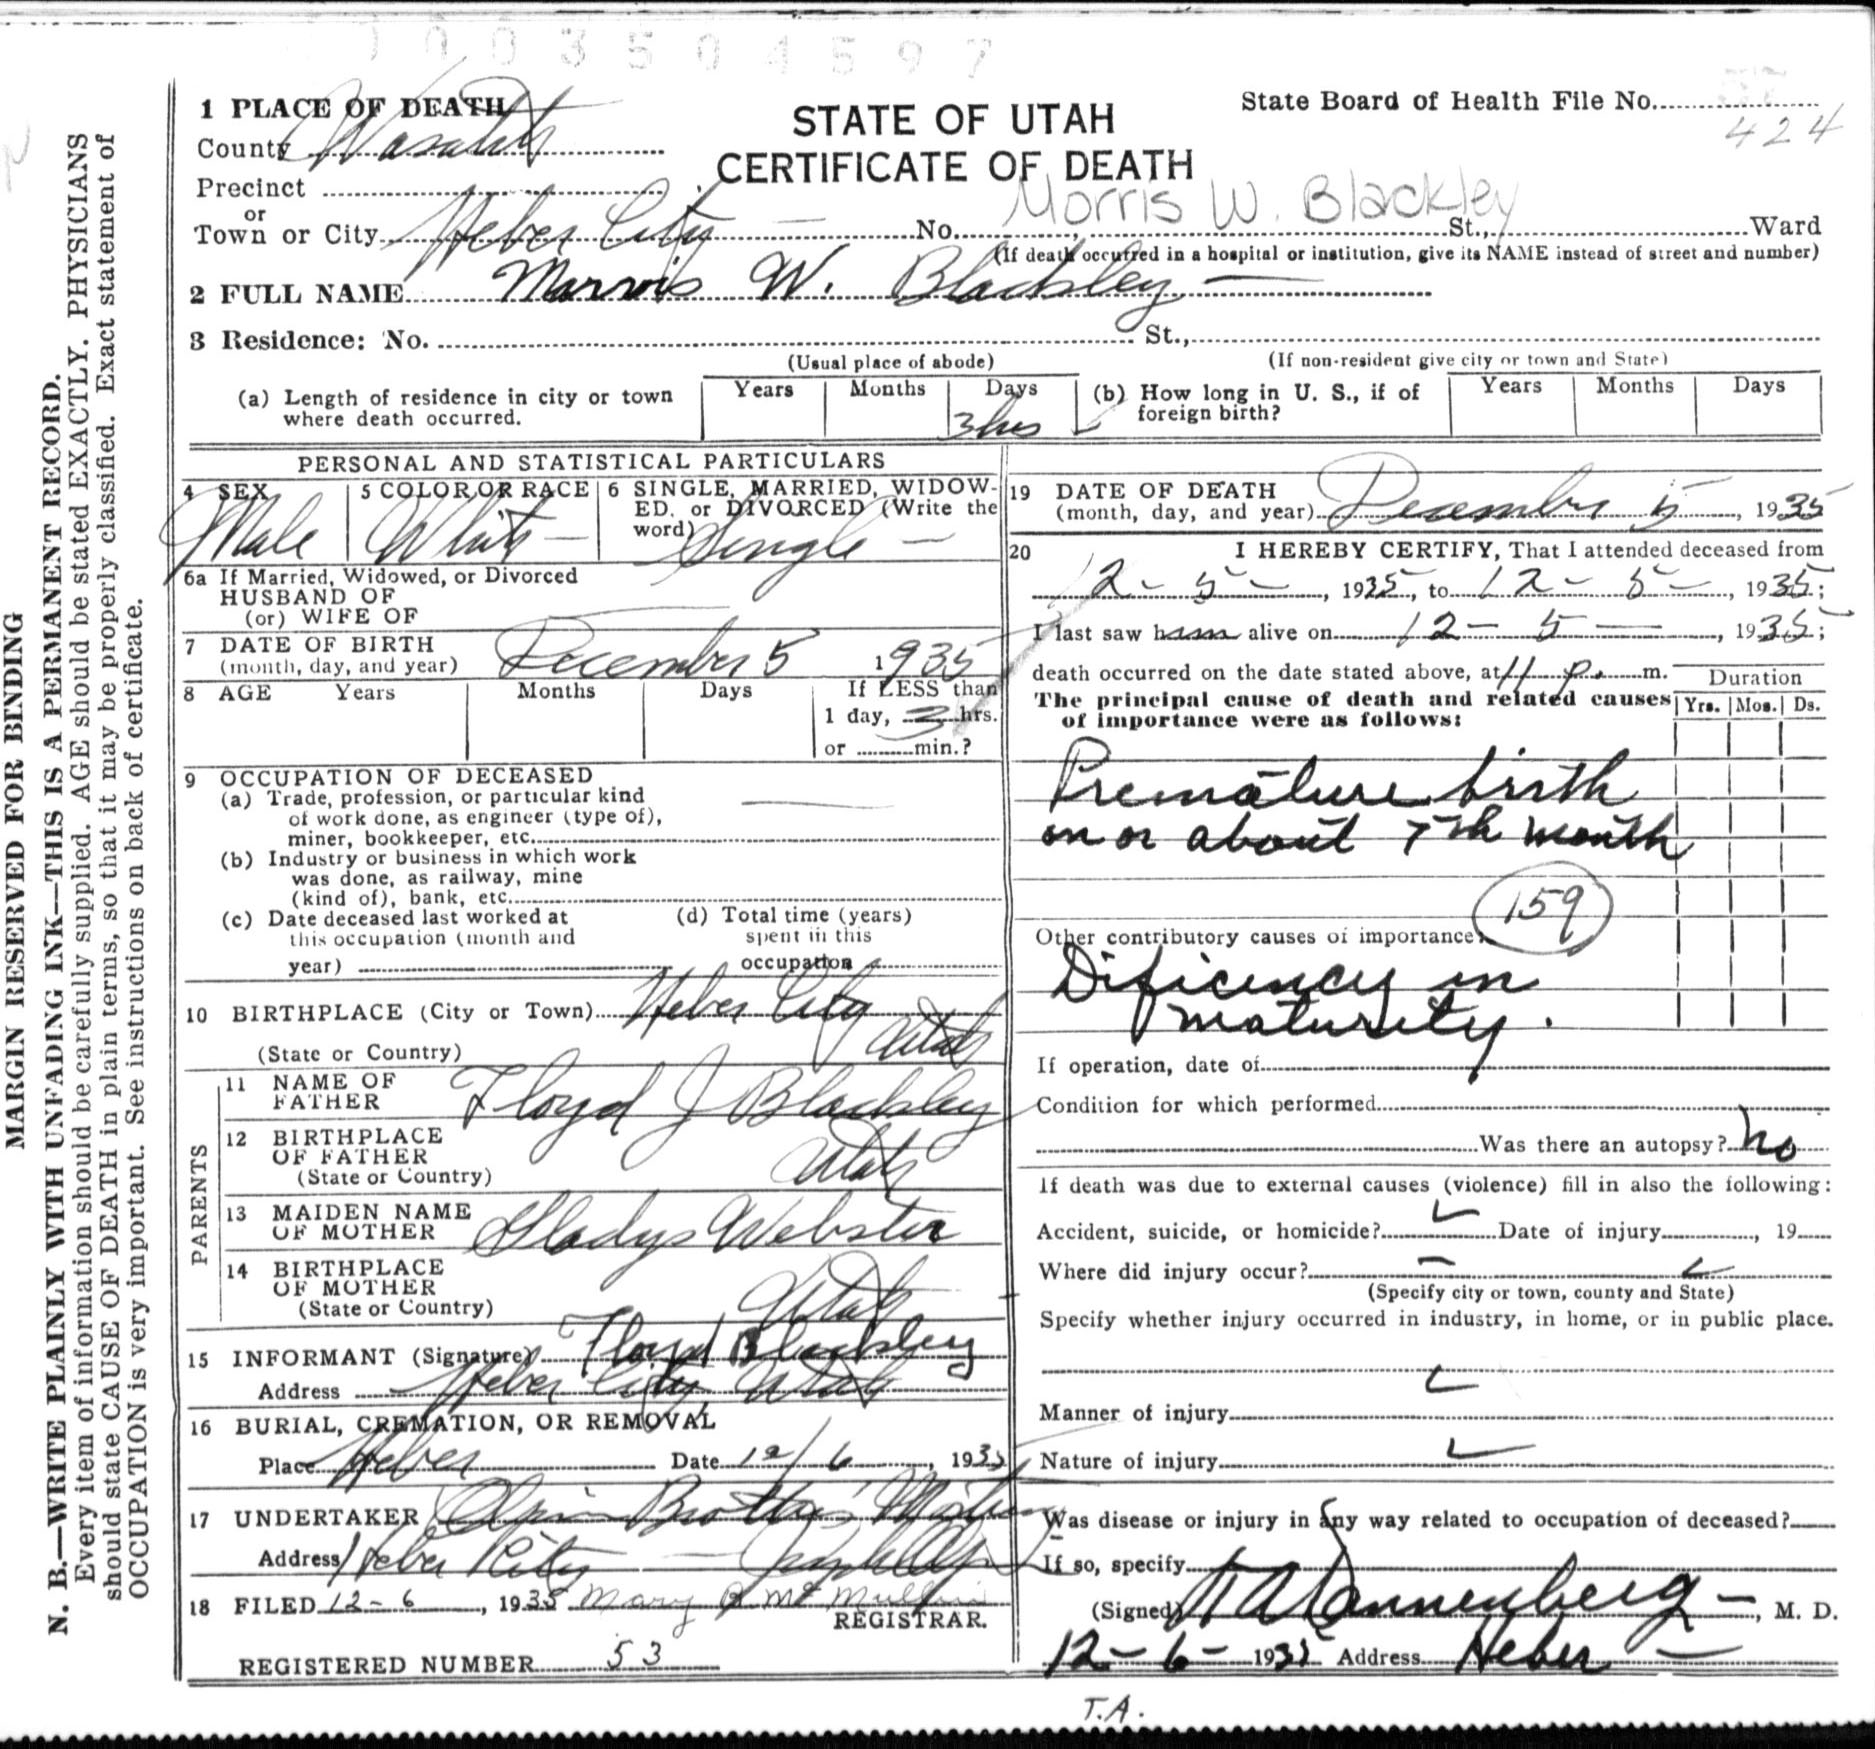 0003504597
1 PLACE OF DEATH
County Wasatch
Precinct
or
Town or City Heber City
STATE OF UTAH
CERTIFICATE OF DEATH
State Board of Health File No.
424
Morris W. Blackley
No. St., Ward
(If death occurred in a hospital or institution, give its NAME instead of street and number)
2 FULL NAME Morris W. Blackley
3 Residence: No. St.,
(Usual place of abode) (If non-resident give city or town and State)
(a) Length of residence in city or town where death occurred. Years Months Days 3hrs
(b) How long in U. S., if of foreign birth? Years Months Days
PERSONAL AND STATISTICAL PARTICULARS
4 SEX Male
5 COLOR OR RACE White
6 SINGLE, MARRIED, WIDOW-
ED. or DIVORCED (Write the
word) Single
6a If Married, Widowed, or Divorced
HUSBAND OF
(or) WIFE OF
7 DATE OF BIRTH
(month, day, and year) December 5 1935
8 AGE Years Months Days If LESS than
1 day, 3 hrs.
or min.?
9 OCCUPATION OF DECEASED
(a) Trade, profession, or particular kind
of work done, as engineer (type of),
miner, bookkeeper, etc.
(b) Industry or business in which work
was done, as railway, mine
(kind of), bank, etc.
(c) Date deceased last worked at
this occupation (month and
year)
(d) Total time (years)
spent in this
occupation
10 BIRTHPLACE (City or Town) Heber City
(State or Country) Utah
PARENTS
11 NAME OF
FATHER Floyd J Blackley
12 BIRTHPLACE
OF FATHER
(State or Country) Utah
13 MAIDEN NAME
OF MOTHER Gladys Webster
14 BIRTHPLACE
OF MOTHER
(State or Country) Utah
15 INFORMANT (Signature) Floyd Blackley
Address Heber City Utah
16 BURIAL, CREMATION, OR REMOVAL
Place Heber Date 12/6, 1935
17 UNDERTAKER Olpin Brothers
Address Heber City
18 FILED 12-6, 1935 Mary
REGISTRAR.
REGISTERED NUMBER 53
19 DATE OF DEATH
(month, day, and year) December 5, 1935
20 I HEREBY CERTIFY, That I attended deceased from
12-5-, 1935, to 12-5-, 1935;
I last saw him alive on 12-5-, 1935;
death occurred on the date stated above, at 11 p. m.
The principal cause of death and related causes
of importance were as follows:
Duration
Yrs. Mos. Ds.
Premature birth
on or about 7th month
159
Other contributory causes of importance:
Dificiency in
maturity.
If operation, date of
Condition for which performed
Was there an autopsy? no
If death was due to external causes (violence) fill in also the following:
Accident, suicide, or homicide? Date of injury , 19
Where did injury occur?
(Specify city or town, county and State)
Specify whether injury occurred in industry, in home, or in public place.
Manner of injury
Nature of injury
Was disease or injury in any way related to occupation of deceased?
If so, specify
(Signed) Dannenberg, M. D.
12-6-1935 Address Heber
T.A.
MARGIN RESERVED FOR BINDING
N. B.—WRITE PLAINLY WITH UNFADING INK—THIS IS A PERMANENT RECORD.
Every item of information should be carefully supplied. AGE should be stated EXACTLY. PHYSICIANS
should state CAUSE OF DEATH in plain terms, so that it may be properly classified. Exact statement of
OCCUPATION is very important. See instructions on back of certificate.